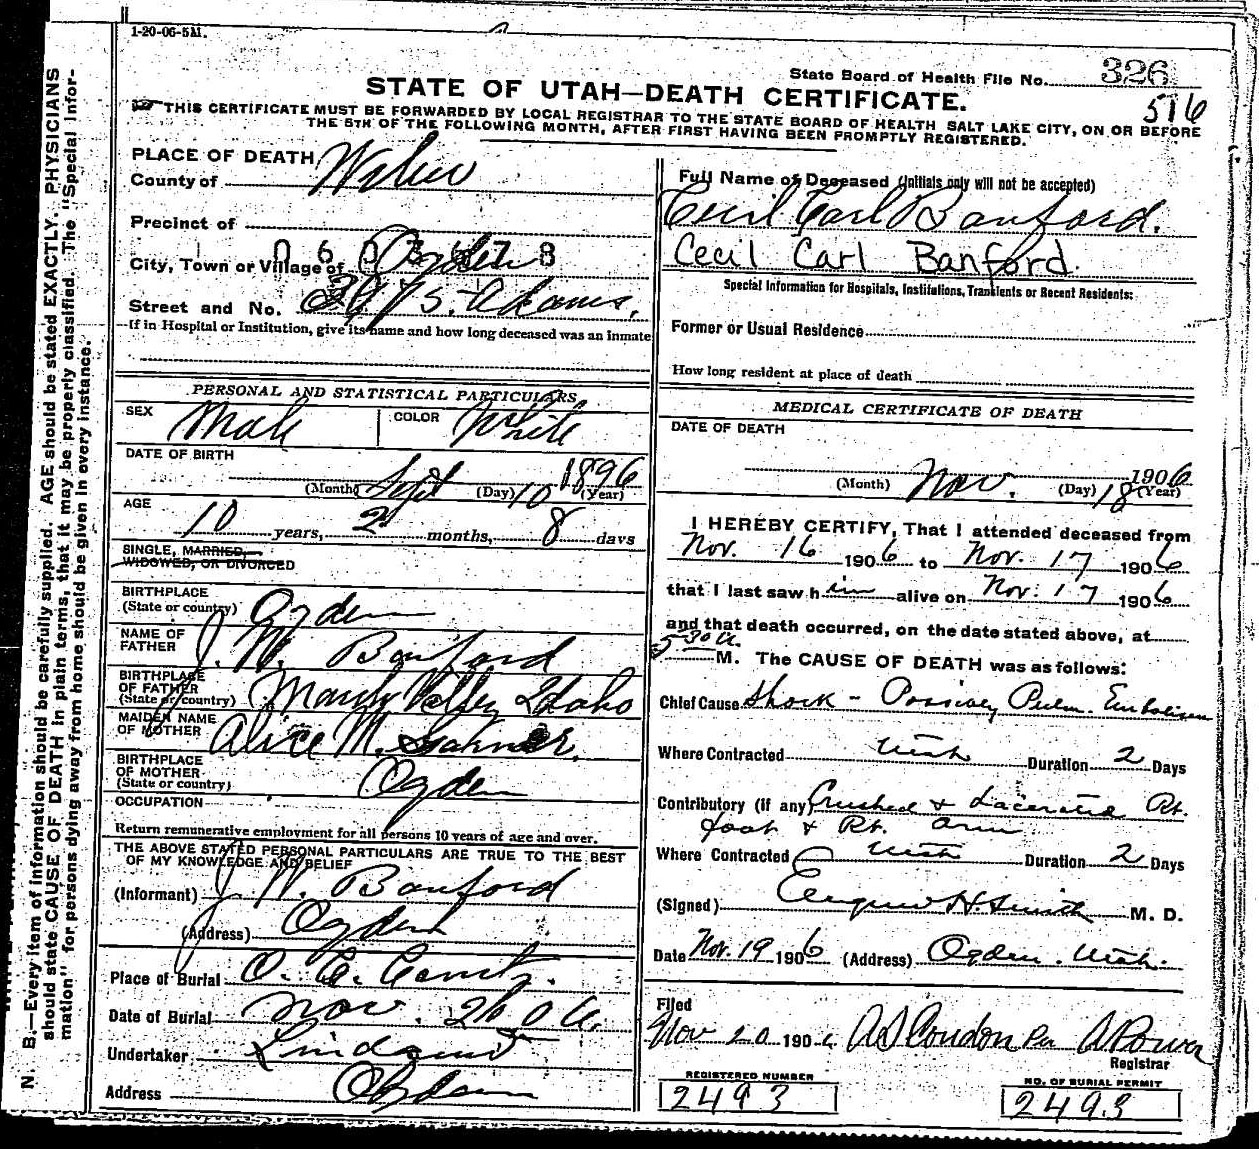 1-20-06-5M.
State Board of Health File No. 326
516
STATE OF UTAH—DEATH CERTIFICATE.
THIS CERTIFICATE MUST BE FORWARDED BY LOCAL REGISTRAR TO THE STATE BOARD OF HEALTH SALT LAKE CITY, ON OR BEFORE
THE 5TH OF THE FOLLOWING MONTH, AFTER FIRST HAVING BEEN PROMPTLY REGISTERED.
PLACE OF DEATH
County of Weber
Precinct of
City, Town or Village of Ogden
Street and No. Adams.
If in Hospital or Institution, give its name and how long deceased was an inmate
PERSONAL AND STATISTICAL PARTICULARS
SEX Male COLOR White
DATE OF BIRTH
(Month) Sept (Day) 10 1896 (Year)
AGE
10 years, 2 months, 8 days
SINGLE, MARRIED,
WIDOWED, OR DIVORCED
BIRTHPLACE
(State or country) Ogden
NAME OF
FATHER J. W. Banford
BIRTHPLACE
OF FATHER
(State or country) Valley Idaho
MAIDEN NAME
OF MOTHER Alice M.
BIRTHPLACE
OF MOTHER
(State or country) Ogden
OCCUPATION
Return remunerative employment for all persons 10 years of age and over.
THE ABOVE STATED PERSONAL PARTICULARS ARE TRUE TO THE BEST
OF MY KNOWLEDGE AND BELIEF
(Informant) J. W. Banford
(Address) Ogden
Place of Burial O. C. Cemty.
Date of Burial Nov.
Undertaker Lindquist
Address Ogden
Full Name of Deceased (Initials only will not be accepted)
Cecil Carl Banford.
Cecil Carl Banford.
Special Information for Hospitals, Institutions, Transients or Recent Residents:
Former or Usual Residence
How long resident at place of death
MEDICAL CERTIFICATE OF DEATH
DATE OF DEATH
(Month) Nov. (Day) 18 1906 (Year)
I HEREBY CERTIFY, That I attended deceased from
Nov. 16 1906 to Nov. 17 1906
that I last saw him alive on Nov. 17 1906
and that death occurred, on the date stated above, at
5-30 a. M. The CAUSE OF DEATH was as follows:
Chief Cause Shock - Possibly Pulm. Embolism
Where Contracted Utah Duration 2 Days
Contributory (if any) Crushed & Lacerated Rt.
foot & Rt. arm
Where Contracted Utah Duration 2 Days
(Signed) H. Smith M. D.
Date Nov. 19 1906 (Address) Ogden. Utah.
Filed
Nov 20 1906 Condon Per
Registrar
REGISTERED NUMBER
2493
NO. OF BURIAL PERMIT
2493
N. B.—Every item of information should be carefully supplied. AGE should be stated EXACTLY. PHYSICIANS
should state CAUSE OF DEATH in plain terms, that it may be properly classified. The "Special Infor-
mation" for persons dying away from home should be given in every instance.